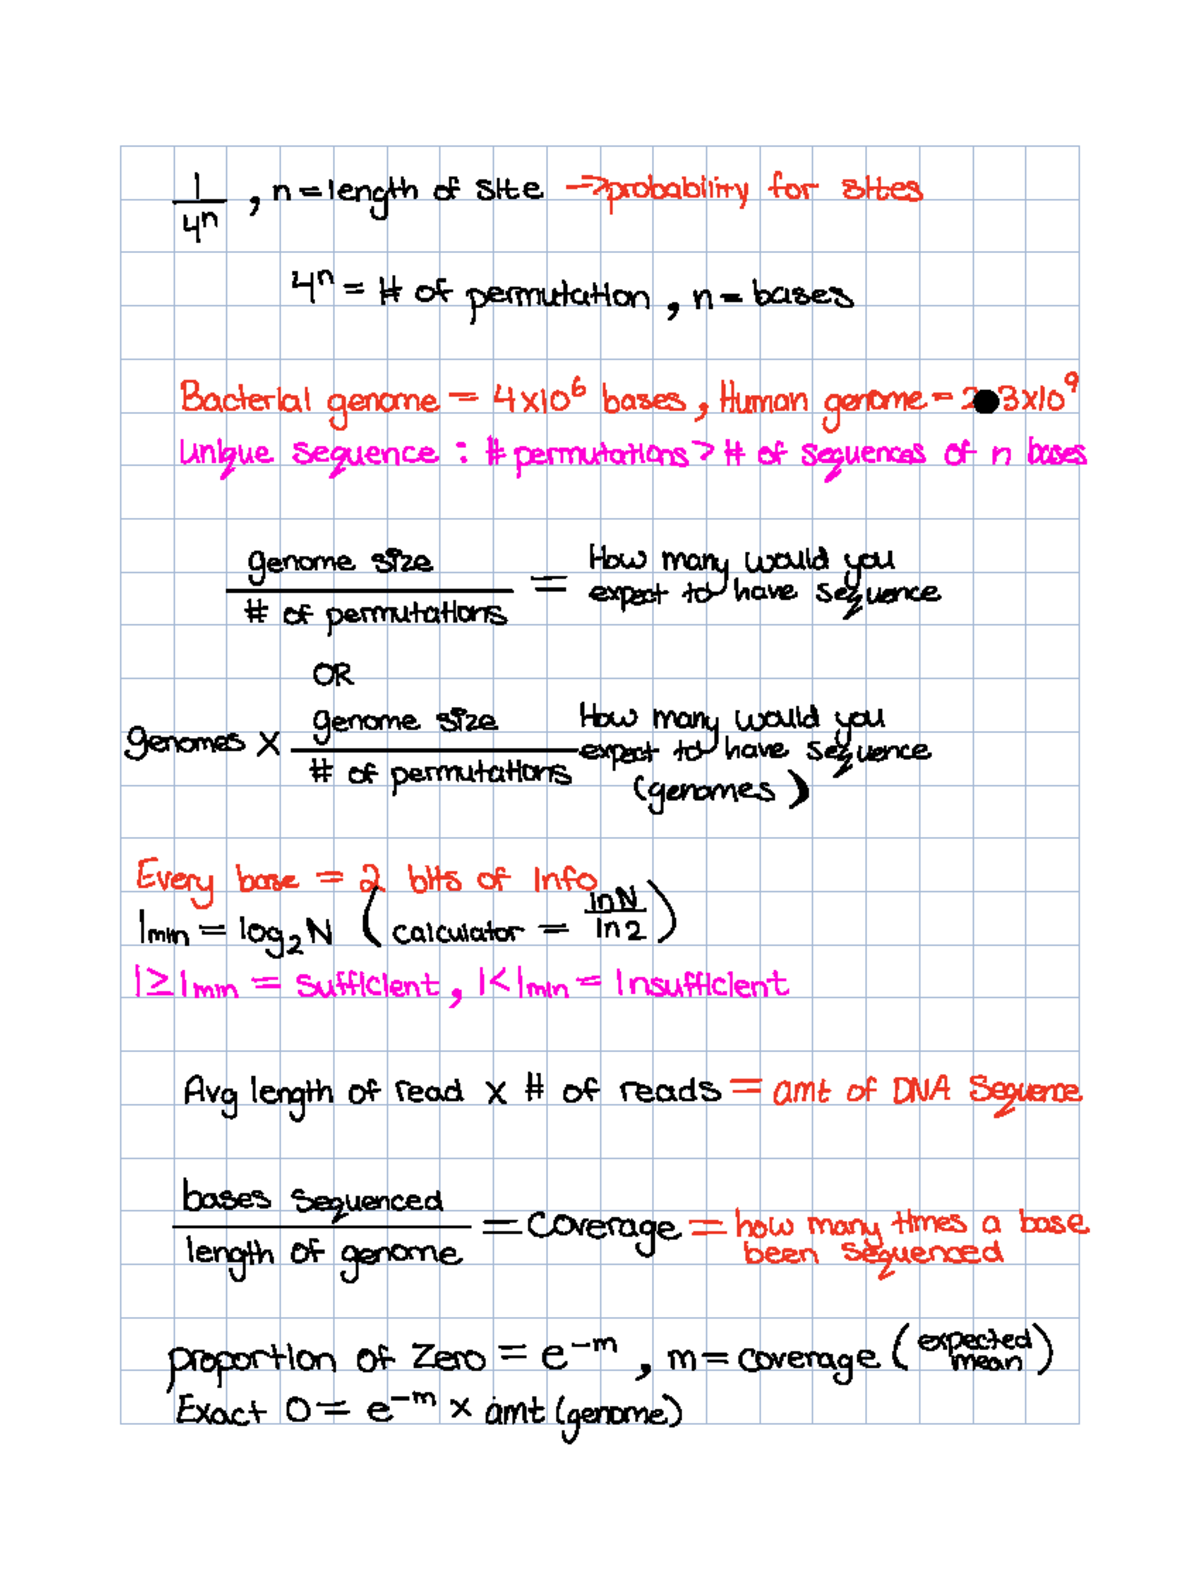 1/4ⁿ , n = length of site → probability for sites
4ⁿ = # of permutation , n = bases
Bacterial genome = 4x10⁶ bases , Human genome = 2●3x10⁹
Unique sequence : # permutations > # of sequences of n bases
genome size / # of permutations = How many would you
expect to have sequence
OR
genomes x genome size / # of permutations How many would you
expect to have sequence
(genomes)
Every base = 2 bits of info
Imin = log₂N (calculator = lnN/ln2)
I ≥ Imin = Sufficient , I < Imin = Insufficient
Avg length of read x # of reads = amt of DNA Sequence
bases sequenced / length of genome = Coverage = how many times a base
been sequenced
proportion of Zero = e⁻ᵐ , m = coverage (expected mean)
Exact 0 = e⁻ᵐ x amt (genome)